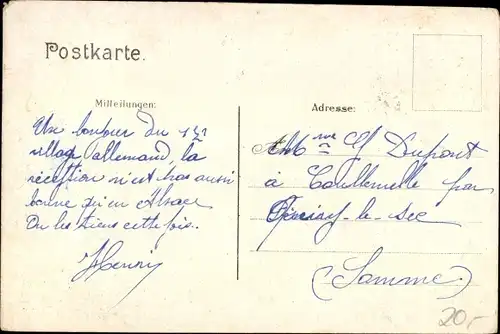 Postkarte.
Mitteilungen:
Un bonjour du 1er
village allemand, la
réception n'est pas aussi
bonne qu'en Alsace
On les tiens cette fois.
Henri
Adresse:
Dupont
à Coullemelle par
le-sec
(Somme)
20,-